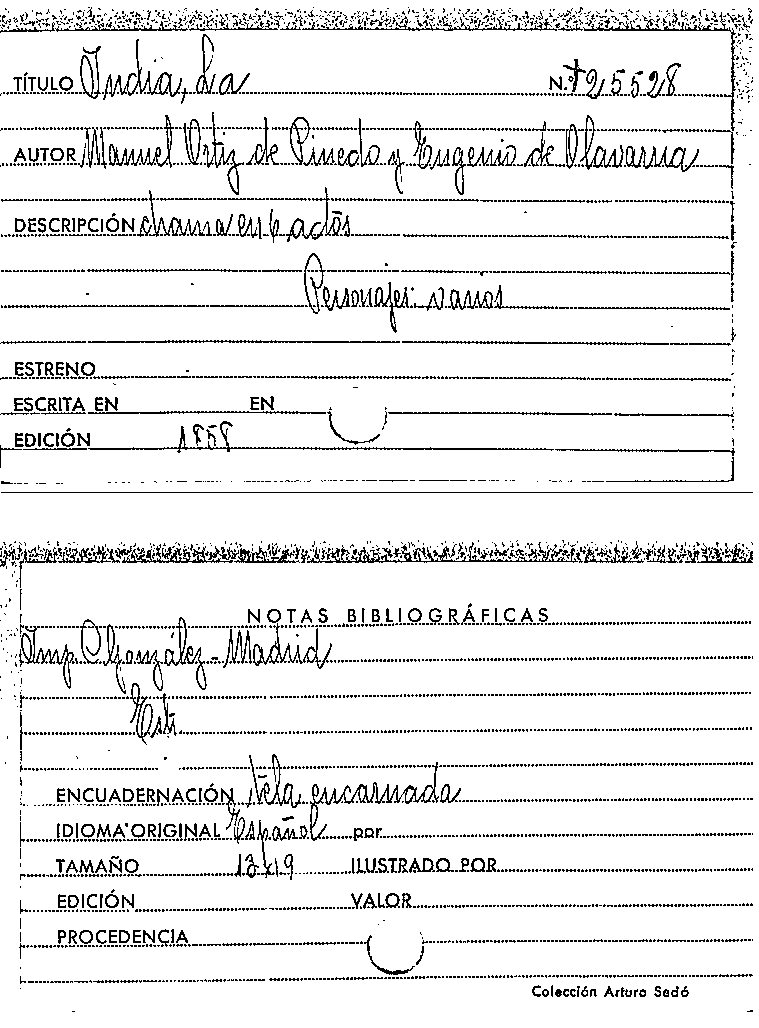 TÍTULO India, La N.º 25528
AUTOR Manuel Ortiz de Pinedo y Eugenio de Olavarria
DESCRIPCIÓN drama en 6 actos
Personajes: varios
ESTRENO
ESCRITA EN EN
EDICIÓN 1858
NOTAS BIBLIOGRÁFICAS
Imp C González - Madrid
ENCUADERNACIÓN tela encarnada
IDIOMA ORIGINAL Español por
TAMAÑO 13x19 ILUSTRADO POR
EDICIÓN VALOR
PROCEDENCIA
Colección Arturo Sedó